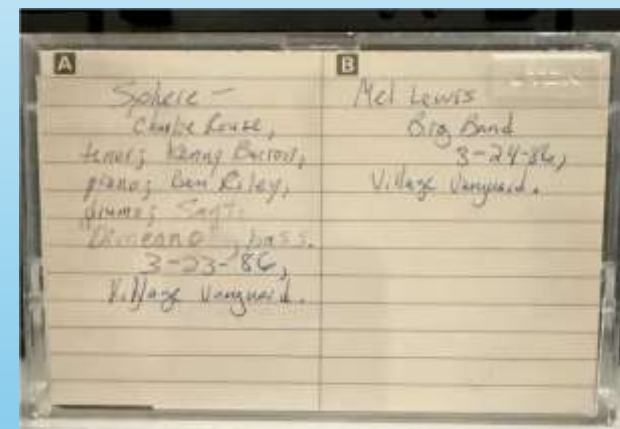 A
Sphere –
Charlie Rouse,
tenor; Kenny Barron,
piano; Ben Riley,
drums; Santi
bass.
3-23-86,
Village Vanguard.
B
Mel Lewis
Big Band
3-24-86,
Village Vanguard.